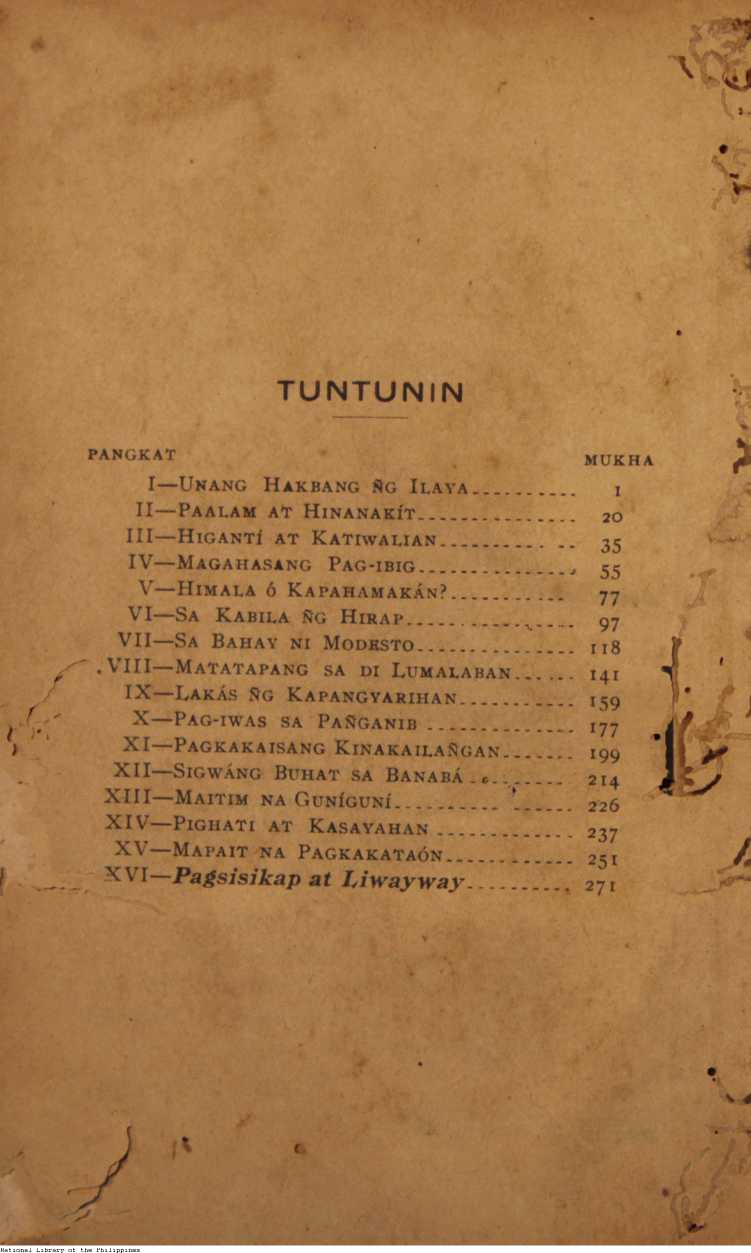 TUNTUNIN
PANGKAT MUKHA
I—UNANG HAKBANG ÑG ILAYA.......... 1
II—PAALAM AT HINANAKÍT............... 20
III—HIGANTÍ AT KATIWALIAN.......... .. 35
IV—MAGAHASANG PAG-IBIG.............. 55
V—HIMALA Ó KAPAHAMAKÁN?........... 77
VI—SA KABILA ÑG HIRAP............... 97
VII—SA BAHAY NI MODESTO............... 118
VIII—MATATAPANG SA DI LUMALABAN...... 141
IX—LAKÁS ÑG KAPANGYARIHAN........... 159
X—PAG-IWAS SA PAÑGANIB .............. 177
XI—PAGKAKAISANG KINAKAILAÑGAN....... 199
XII—SIGWÁNG BUHAT SA BANABÁ ......... 214
XIII—MAITIM NA GUNÍGUNÍ.......... ...... 226
XIV—PIGHATI AT KASAYAHAN ............. 237
XV—MAPAIT NA PAGKAKATAÓN............ 251
XVI—Pagsisikap at Liwayway.......... 271
National Library of the Philippines